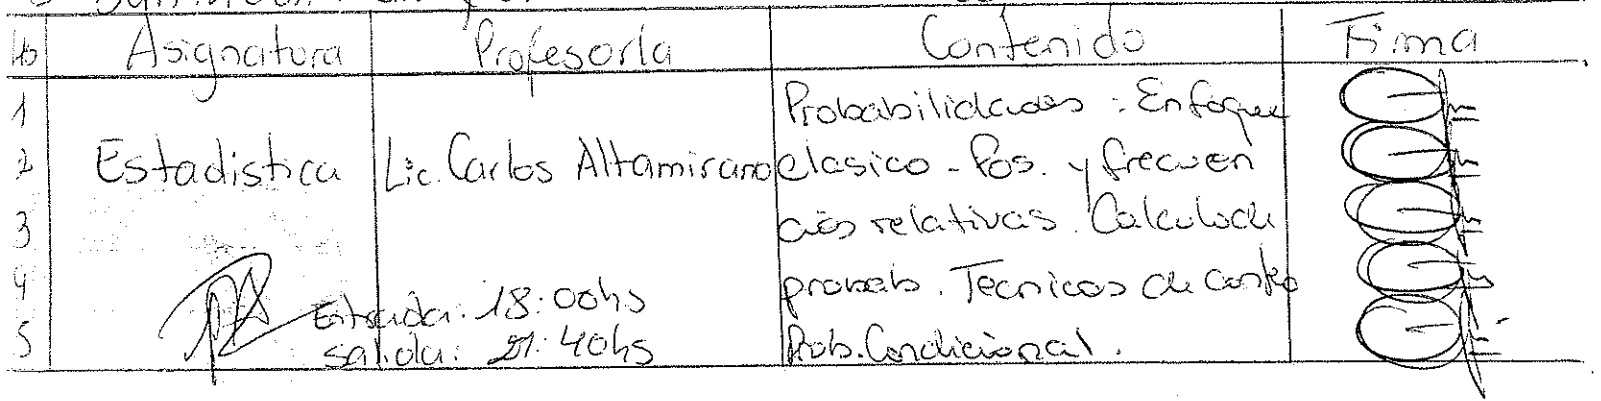 Ho Asignatura Profesor/a Contenido Firma
1 Probabilidades: Enfoque
2 Estadistica Lic. Carlos Altamirano clasico - Pos. y frecuen
3 cias relativas. Calculo de
4 probab. Tecnicas de conteo
Entrada: 18:00hs
5 Prob. Condicional.
salida: 21:40hs